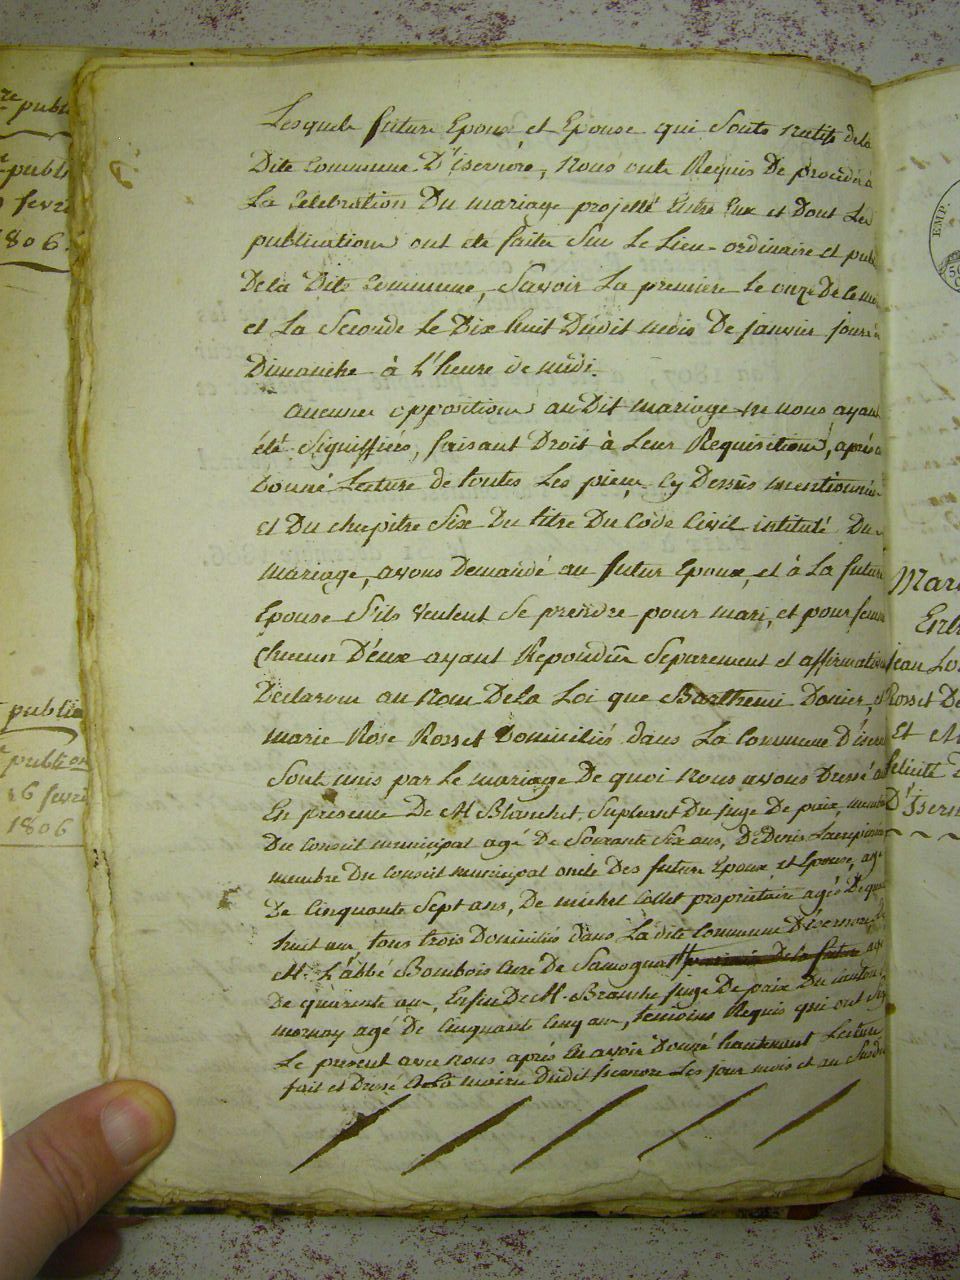 Lesquels futurs Epoux et Epouse qui Sonts Natifs de la
Dite Commune D'isernore, Nous onts Requis De procéder à
La Celebration Du mariage projetté Entre Eux et Dont Les
publications ont été faites Sur Le Lieu-ordinaire et publ
De la Dite Commune, Savoir La premiere le onze De le moi
et La Seconde le Dix huit Dudit mois De janvier jours de
Dimanche à L'heure de midi.
aucunes oppositions au Dit mariage ne nous ayant
été Signiffiées, faisant Droit à Leur Requisitions, après a
Donné Lecture de toutes Les pieces Cy Dessus mentionnée
et Du chapitre Six Du titre Du Code Civil intitulé Du
mariage, avons Demandé au futur Epoux, et à La future
Epouse S'ils veulent Se prendre pour mari, et pour femm
Chacun D'eux ayant Repondu Separement et affirmativ
Declarons au Nom De la Loi que Barthemi Donier, et
marie Rose Rosset Domiciliés dans La Commune D'iser
Sont unis par Le mariage De quoi Nous avons Dressé a
En presence De M Blanchet, Supleant Du juge De paix, membre
Du Conseil municipal agé De Soixante Six ans, De Denis
membre Du Conseil municipal oncle Des futurs Epoux et Epouse, age
De Cinquante Sept ans, De michel Collet proprietaire agés De
huit ans, tous trois Domiciliés dans La dite Commune D'isernore, de
M. L'abbé Bombois Curé De Samognat age
De quarante ans, Enfin De M. juge De paix Du canton
mornay agé De Cinquante Cinq ans, temoins Requis qui ont Sig
Le present avec Nous après En avoir Donné hautement Lecture
fait et Dressé A La mairie Dudit Isernore Les jour mois et an Susdit
re publi
publi
fevri
1806.
publia
publion
16 fevri
1806
EMP.
50
Mari
Entr
jean Lo
Rosset De
Et
felicité
D'Isern